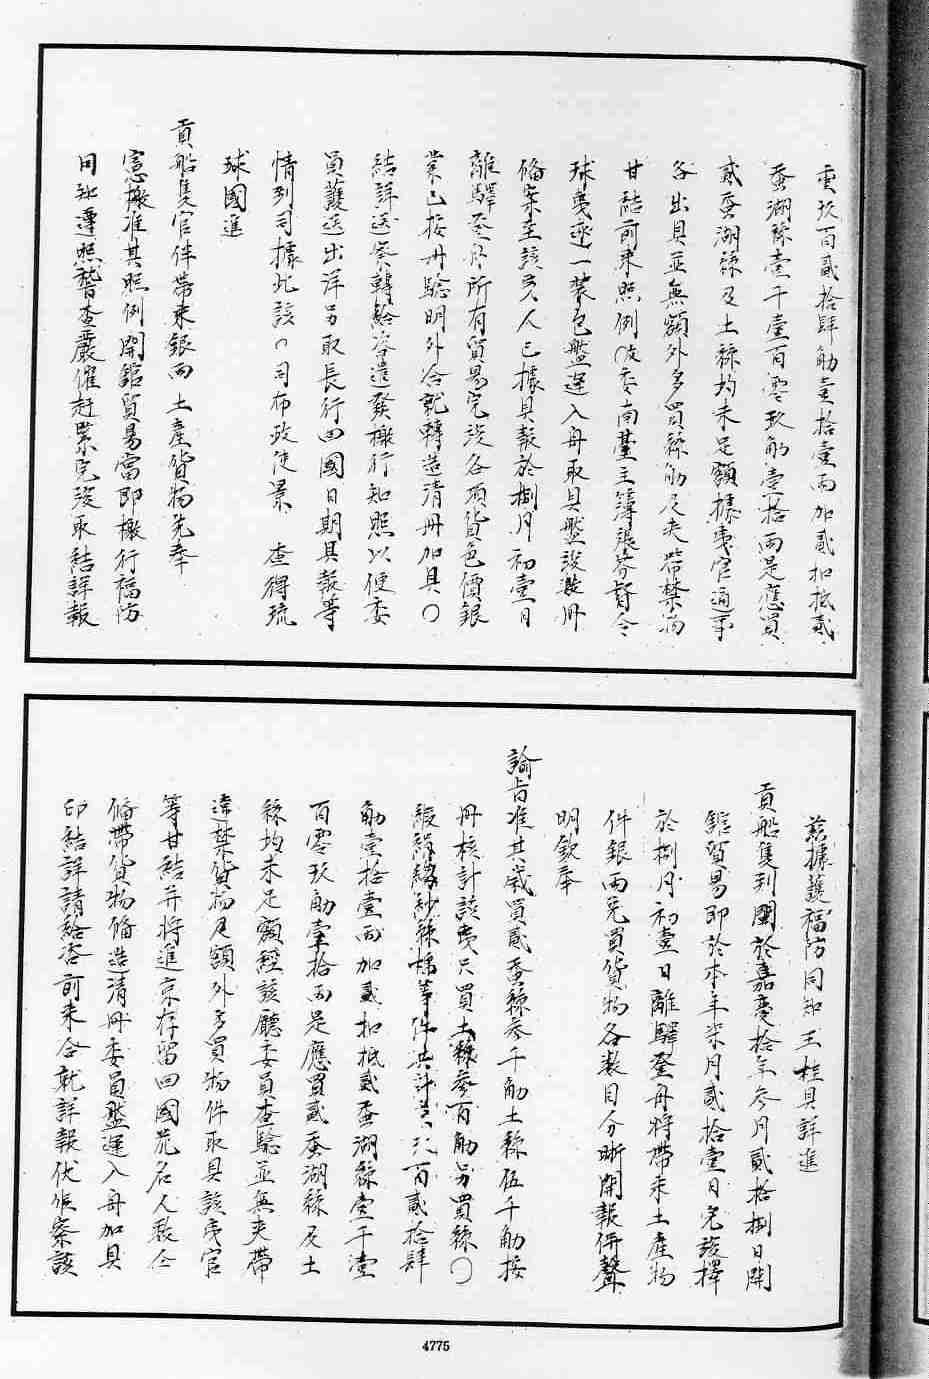 重玖百貳拾肆觔壹拾壹両加貳扣抵貳
蚕湖絲壹千壹百零玖觔壹拾両是應買
貳蚕湖絲及土絲均未足額據夷官通事
各出具並無額外多買絲觔及夾帶禁物
甘結前来照例仮委南臺主簿張芬督令
球夷逐一裝包盤運入舟取具盤浚艇冊
俻案至該夷人已據具報於捌月初壹日
離驛登舟所有貿易完竣各項貨色價銀
業已按冊驗明外合就轉造清冊加具〇
結詳送察轉給咨遣發檄行知照以便委
員護送出洋另取長行回國日期具報等
情到司據此該〇司布政使景 查得琉
球國進
貢船隻官伴帶来銀両土産貨物先奉
憲檄准其照例開舘貿易當即檄行福防
同知遵照稽查嚴催赶緊完竣取結詳報
茲據護福防同知王桂具詳進
貢船隻到閩於嘉慶拾年叁月貳拾捌日開
舘貿易即於本年柒月貳拾壹日完竣擇
於捌月初壹日離驛登舟将帶来土産物
件銀両兌買貨物各数目分晰開報併聲
明欽奉
諭旨准其歲買貳蚕絲叁千觔土絲伍千觔按
冊核計該夷只買土絲叁百觔另買絲〇
緞縐紗絲棉等件共計重玖百貳拾肆
觔壹拾壹両加貳扣抵貳蚕湖絲壹千壹
百零玖觔壹拾両是應買貳蚕湖絲及土
絲均未足額經該廳委員查驗並無夾帶
違禁貨物及額外多買物件取具該夷官
等甘結并将進京存留回國花名人数仝
俻帶貨物俻造清冊委員盤運入舟加具
印結詳請給咨前来合就詳報伏候察該
4775